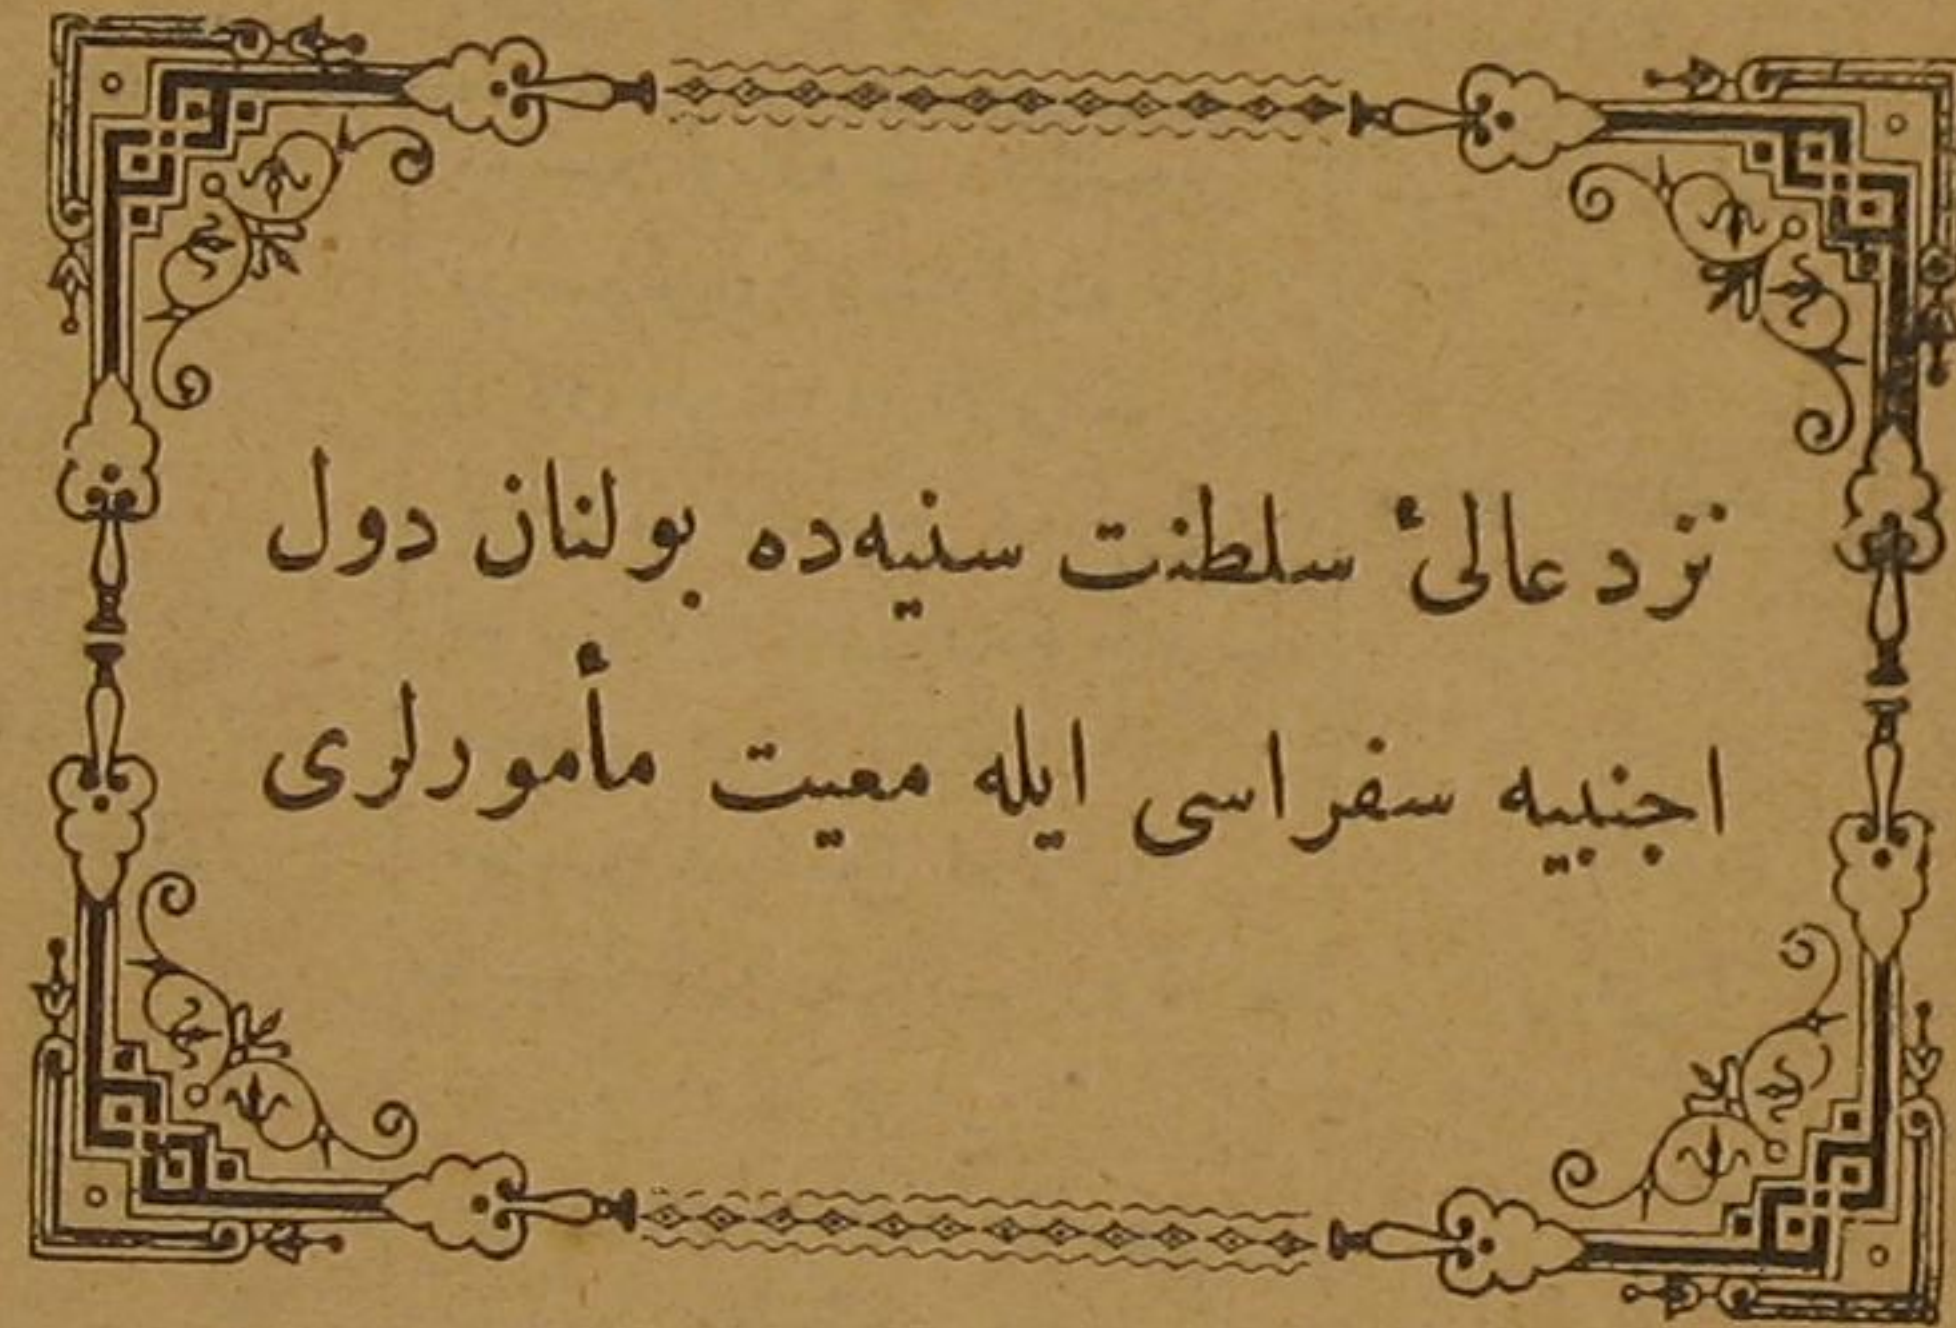 نزد عالئ سلطنت سنیه‌ده بولنان دول
اجنبیه سفراسی ایله معیت مأمورلری